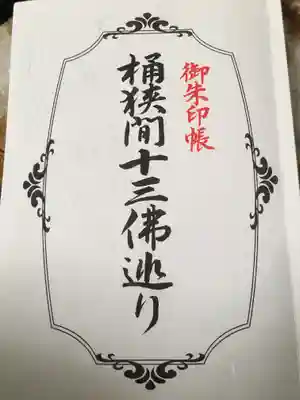 御朱印帳
桶狭間十三佛巡り